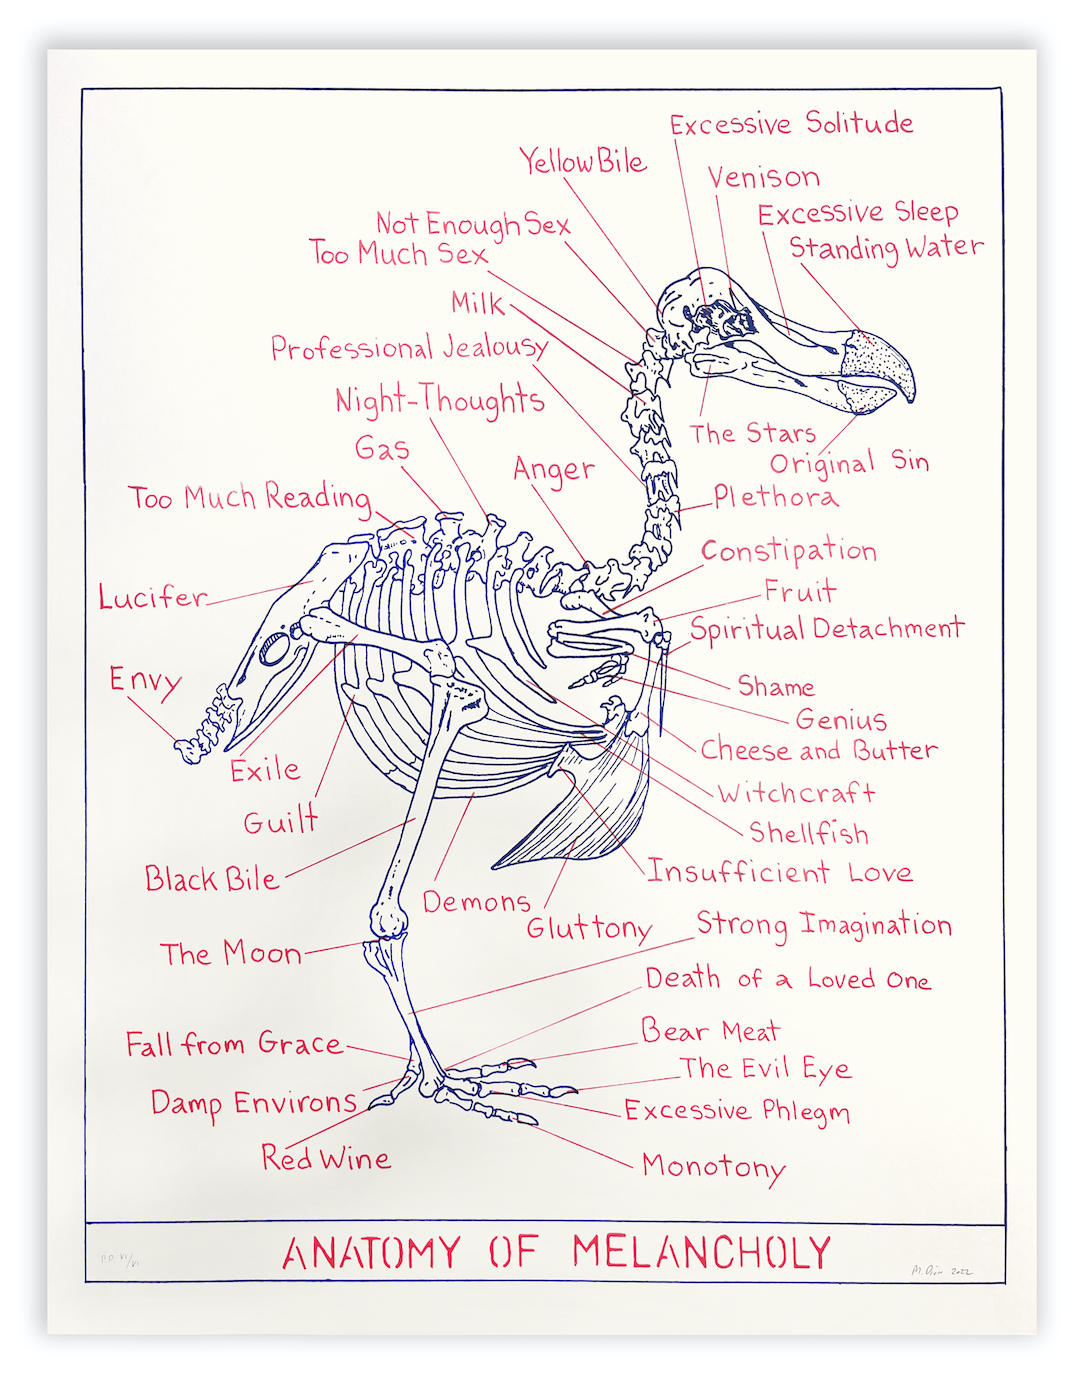 Excessive Solitude
Yellow Bile
Venison
Excessive Sleep
Not Enough Sex
Standing Water
Too Much Sex
Milk
Professional Jealousy
Night-Thoughts
The Stars
Gas
Original Sin
Anger
Too Much Reading
Plethora
Constipation
Lucifer
Fruit
Spiritual Detachment
Envy
Shame
Genius
Cheese and Butter
Exile
Witchcraft
Guilt
Shellfish
Insufficient Love
Black Bile
Demons
Gluttony
Strong Imagination
The Moon
Death of a Loved One
Bear Meat
Fall from Grace
The Evil Eye
Damp Environs
Excessive Phlegm
Red Wine
Monotony
ANATOMY OF MELANCHOLY
P.P. VI/VI
2022